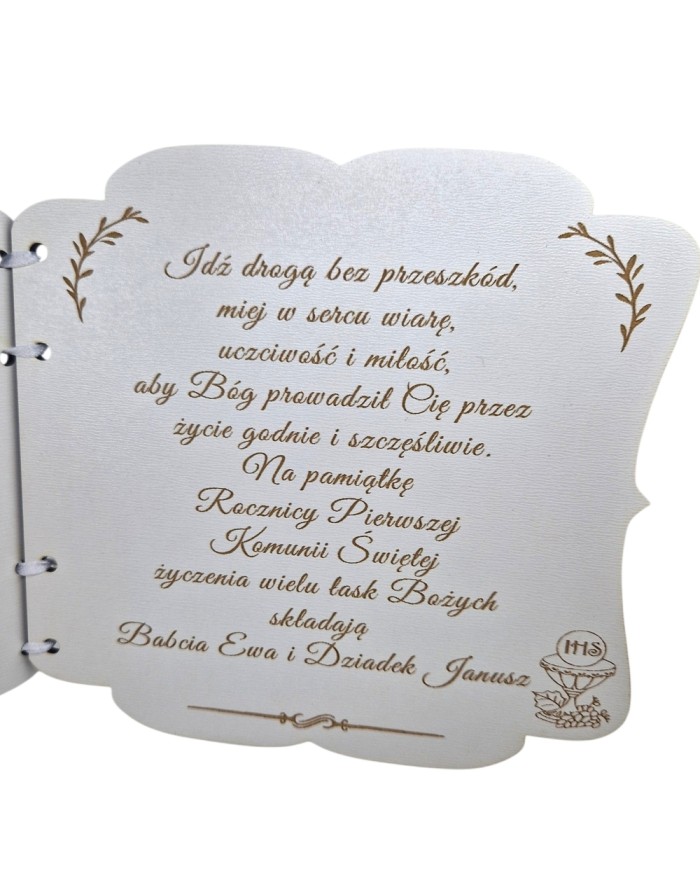 Idź drogą bez przeszkód,
miej w sercu wiarę,
uczciwość i miłość,
aby Bóg prowadził Cię przez
życie godnie i szczęśliwie.
Na pamiątkę
Rocznicy Pierwszej
Komunii Świętej
życzenia wielu łask Bożych
składają
Babcia Ewa i Dziadek Janusz
IHS